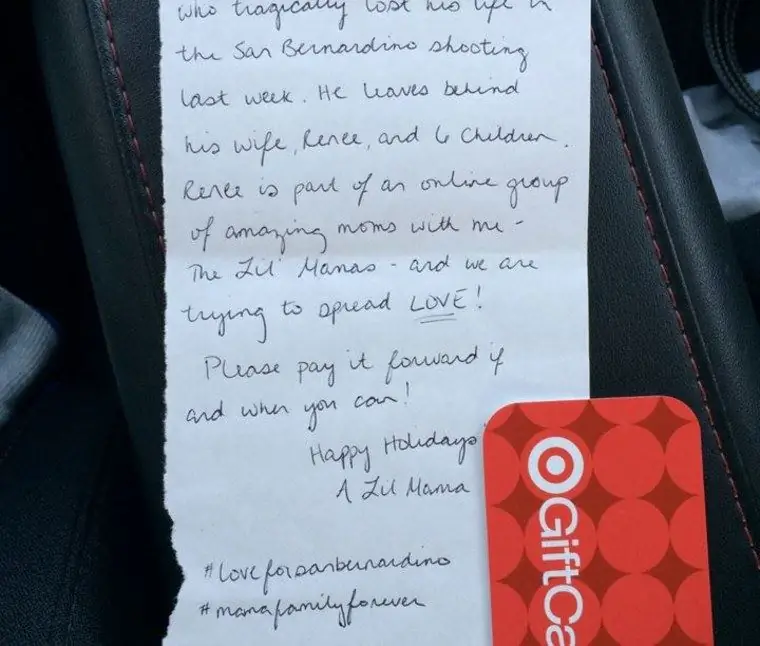 who tragically lost his life in
the San Bernardino shooting
last week. He leaves behind
his wife, Renee, and 6 children.
Renee is part of an online group
of amazing moms with me -
The Lil' Mamas - and we are
trying to spread LOVE!
Please pay it forward if
and when you can!
Happy Holidays
A Lil Mama
#loveforsanbernardino
#mamafamilyforever
GiftCa